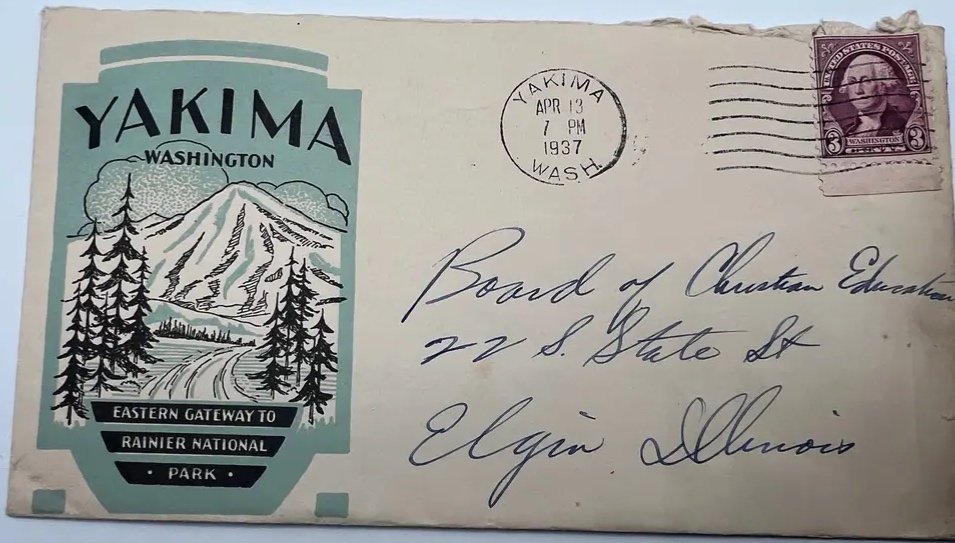 YAKIMA
WASHINGTON
EASTERN GATEWAY TO
RAINIER NATIONAL
· PARK ·
YAKIMA
APR 13
7 PM
1937
WASH.
UNITED STATES POSTAGE
3 WASHINGTON 3
Board of Christian Education
22 S. State St
Elgin Illinois